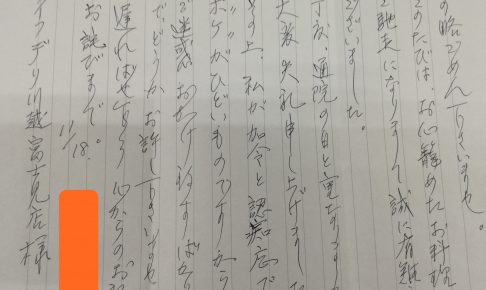 の略ごめん下さいませ。
このたびは、お心籠めたお料理
ご馳走になりまして誠に有難
ございました。
丁度、通院の日と重なりまし
大変失礼申し上げまし
その上、私が加令と認知症で
ボケがひどいものですから
ご迷惑おかけ致すばか
どうかお許し下さいませ
遅ればせ乍ら心からのお
お詫びまで。
11/18.
イフデリ川越富士見店様